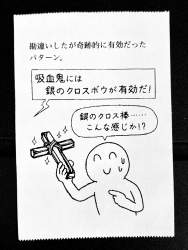 勘違いしたが奇跡的に有効だった
パターン。
吸血鬼には
銀のクロスボウが有効だ!
銀のクロス棒……
こんな感じか!?